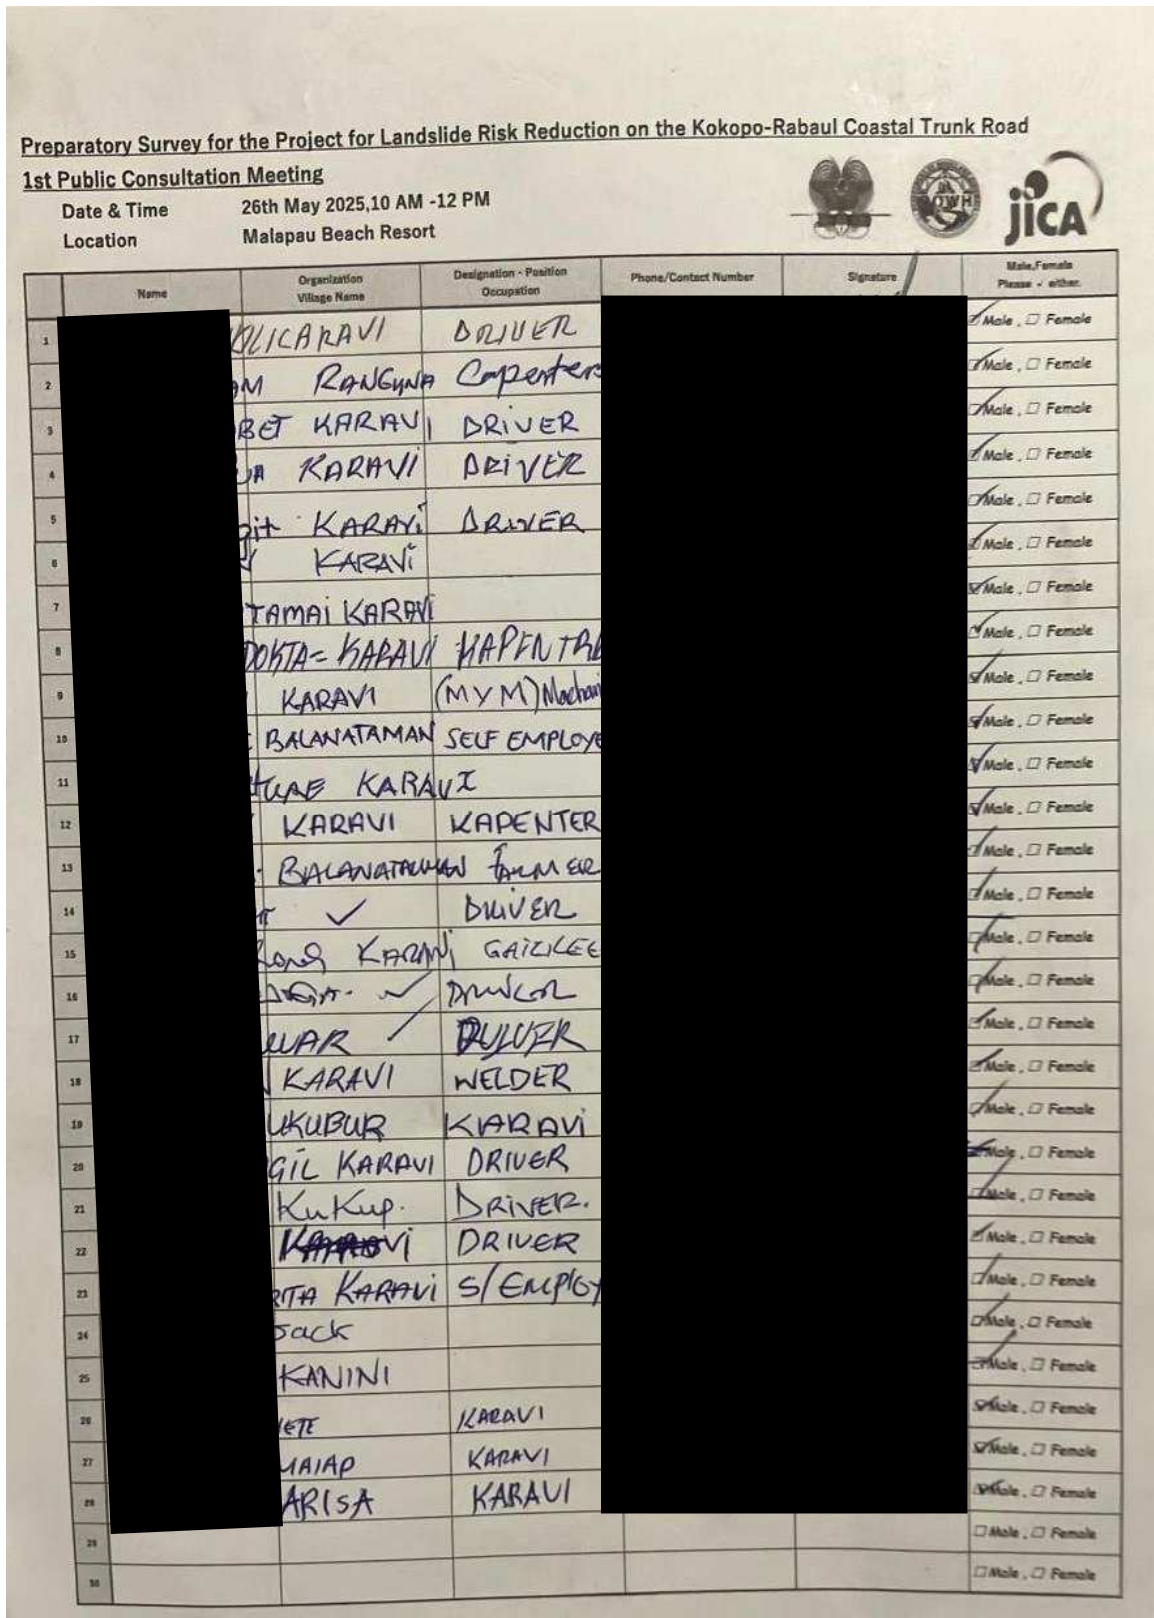 Preparatory Survey for the Project for Landslide Risk Reduction on the Kokopo-Rabaul Coastal Trunk Road
1st Public Consultation Meeting
Date & Time 26th May 2025,10 AM -12 PM
Location Malapau Beach Resort
JICA
Name Organization Village Name Designation - Position Occupation Phone/Contact Number Signature Male,Female Please ✓ either.
1 KARAVI DRIVER Male, Female
2 AM RANGUNA Capenters Male, Female
3 BET KARAVI DRIVER Male, Female
4 UA KARAVI DRIVER Male, Female
5 git KARAVi DRIVER Male, Female
6 KARAVi Male, Female
7 TAMAi KARAVi Male, Female
8 DOKTA= KARAVI KAPENTRE Male, Female
9 KARAVI (MYM) Machani Male, Female
10 BALANATAMAN SELF EMPLOYE Male, Female
11 KARAVI Male, Female
12 KARAVI KAPENTER Male, Female
13 BALANATAMAN FARMER Male, Female
14 ✓ DRIVER Male, Female
15 KARAVi Male, Female
16 ✓ Male, Female
17 WAR Male, Female
18 KARAVI WELDER Male, Female
19 UKUBUR KARAVi Male, Female
20 GIL KARAVI DRIVER Male, Female
21 KuKup. DRiVER. Male, Female
22 KARAVi DRIVER Male, Female
23 RITA KARAVi S/EMPLOY Male, Female
24 Jack Male, Female
25 KANINI Male, Female
26 IETE KARAVI Male, Female
27 MAIAP KARAVI Male, Female
28 ARISA KARAVI Male, Female
29 Male, Female
30 Male, Female